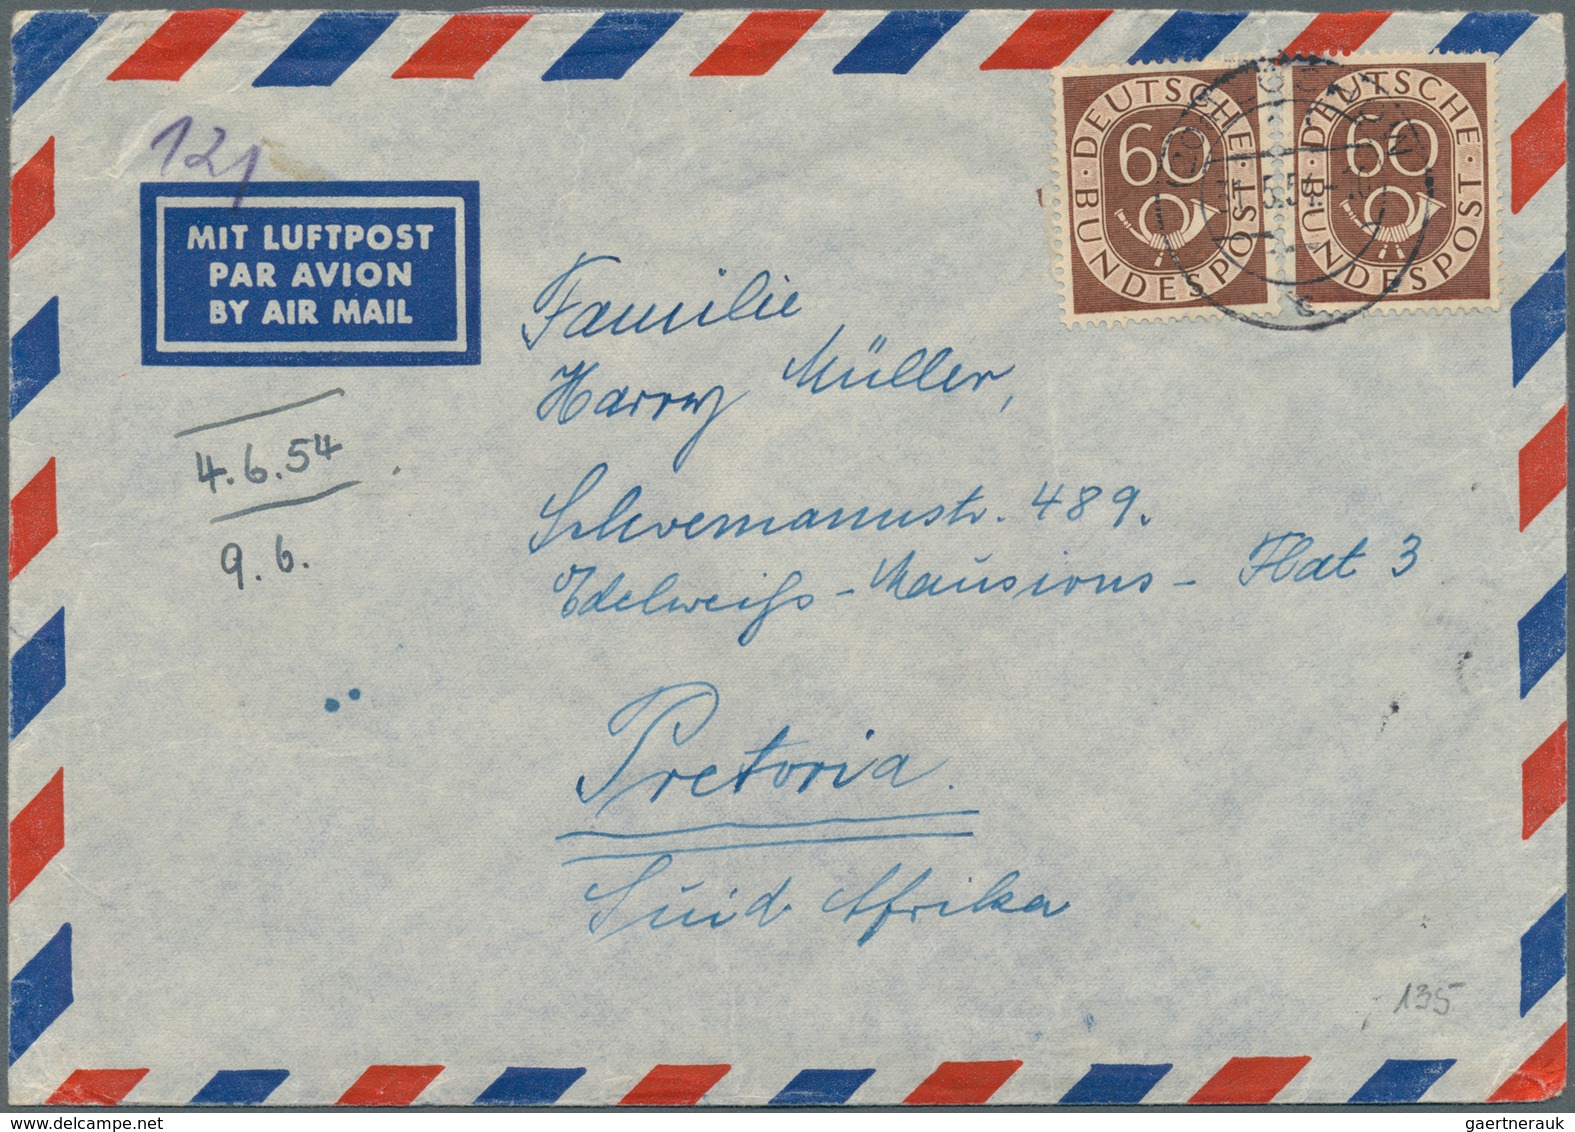 121
MIT LUFTPOST
PAR AVION
BY AIR MAIL
DEUTSCHE BUNDESPOST
60
DEUTSCHE BUNDESPOST
60
Familie
Harry Müller,
4.6.54
9.6.
Schoemannstr. 489.
Edelweiß-Mansions - Flat 3
Pretoria.
Süid Afrika
135
gaertnerauk